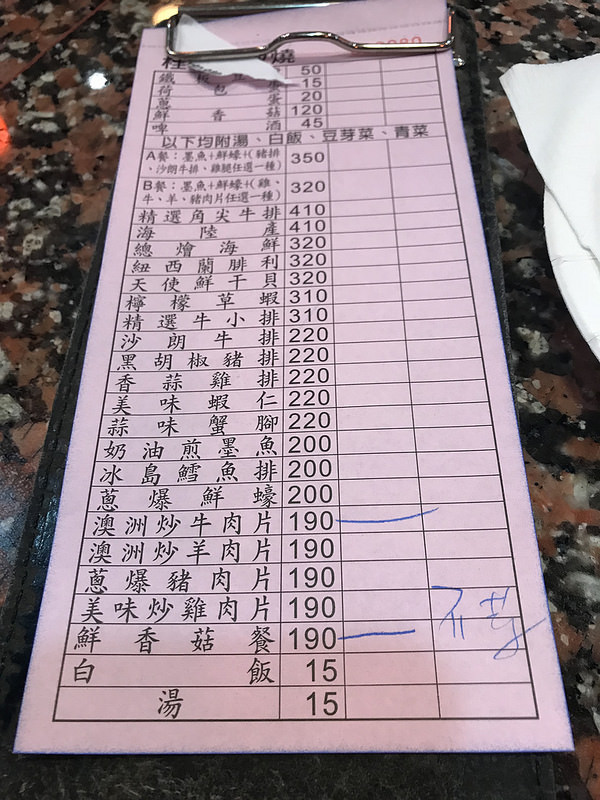 燒
鐵板豆 50
荷包蛋 15
蔥蛋 20
鮮香菇 120
啤酒 45
以下均附湯、白飯、豆芽菜、青菜
A餐：墨魚+鮮蠔+(豬排、沙朗牛排、雞腿任選一種) 350
B餐：墨魚+鮮蠔+(雞、牛、羊、豬肉片任選一種) 320
精選角尖牛排 410
海陸產 410
總燴海鮮 320
紐西蘭腓利 320
天使鮮干貝 320
檸檬草蝦 310
精選牛小排 310
沙朗牛排 220
黑胡椒豬排 220
香蒜雞排 220
美味蝦仁 220
蒜味蟹腳 220
奶油煎墨魚 200
冰島鱈魚排 200
蔥爆鮮蠔 200
澳洲炒牛肉片 190 一
澳洲炒羊肉片 190
蔥爆豬肉片 190
美味炒雞肉片 190
鮮香菇餐 190 一
白飯 15
湯 15